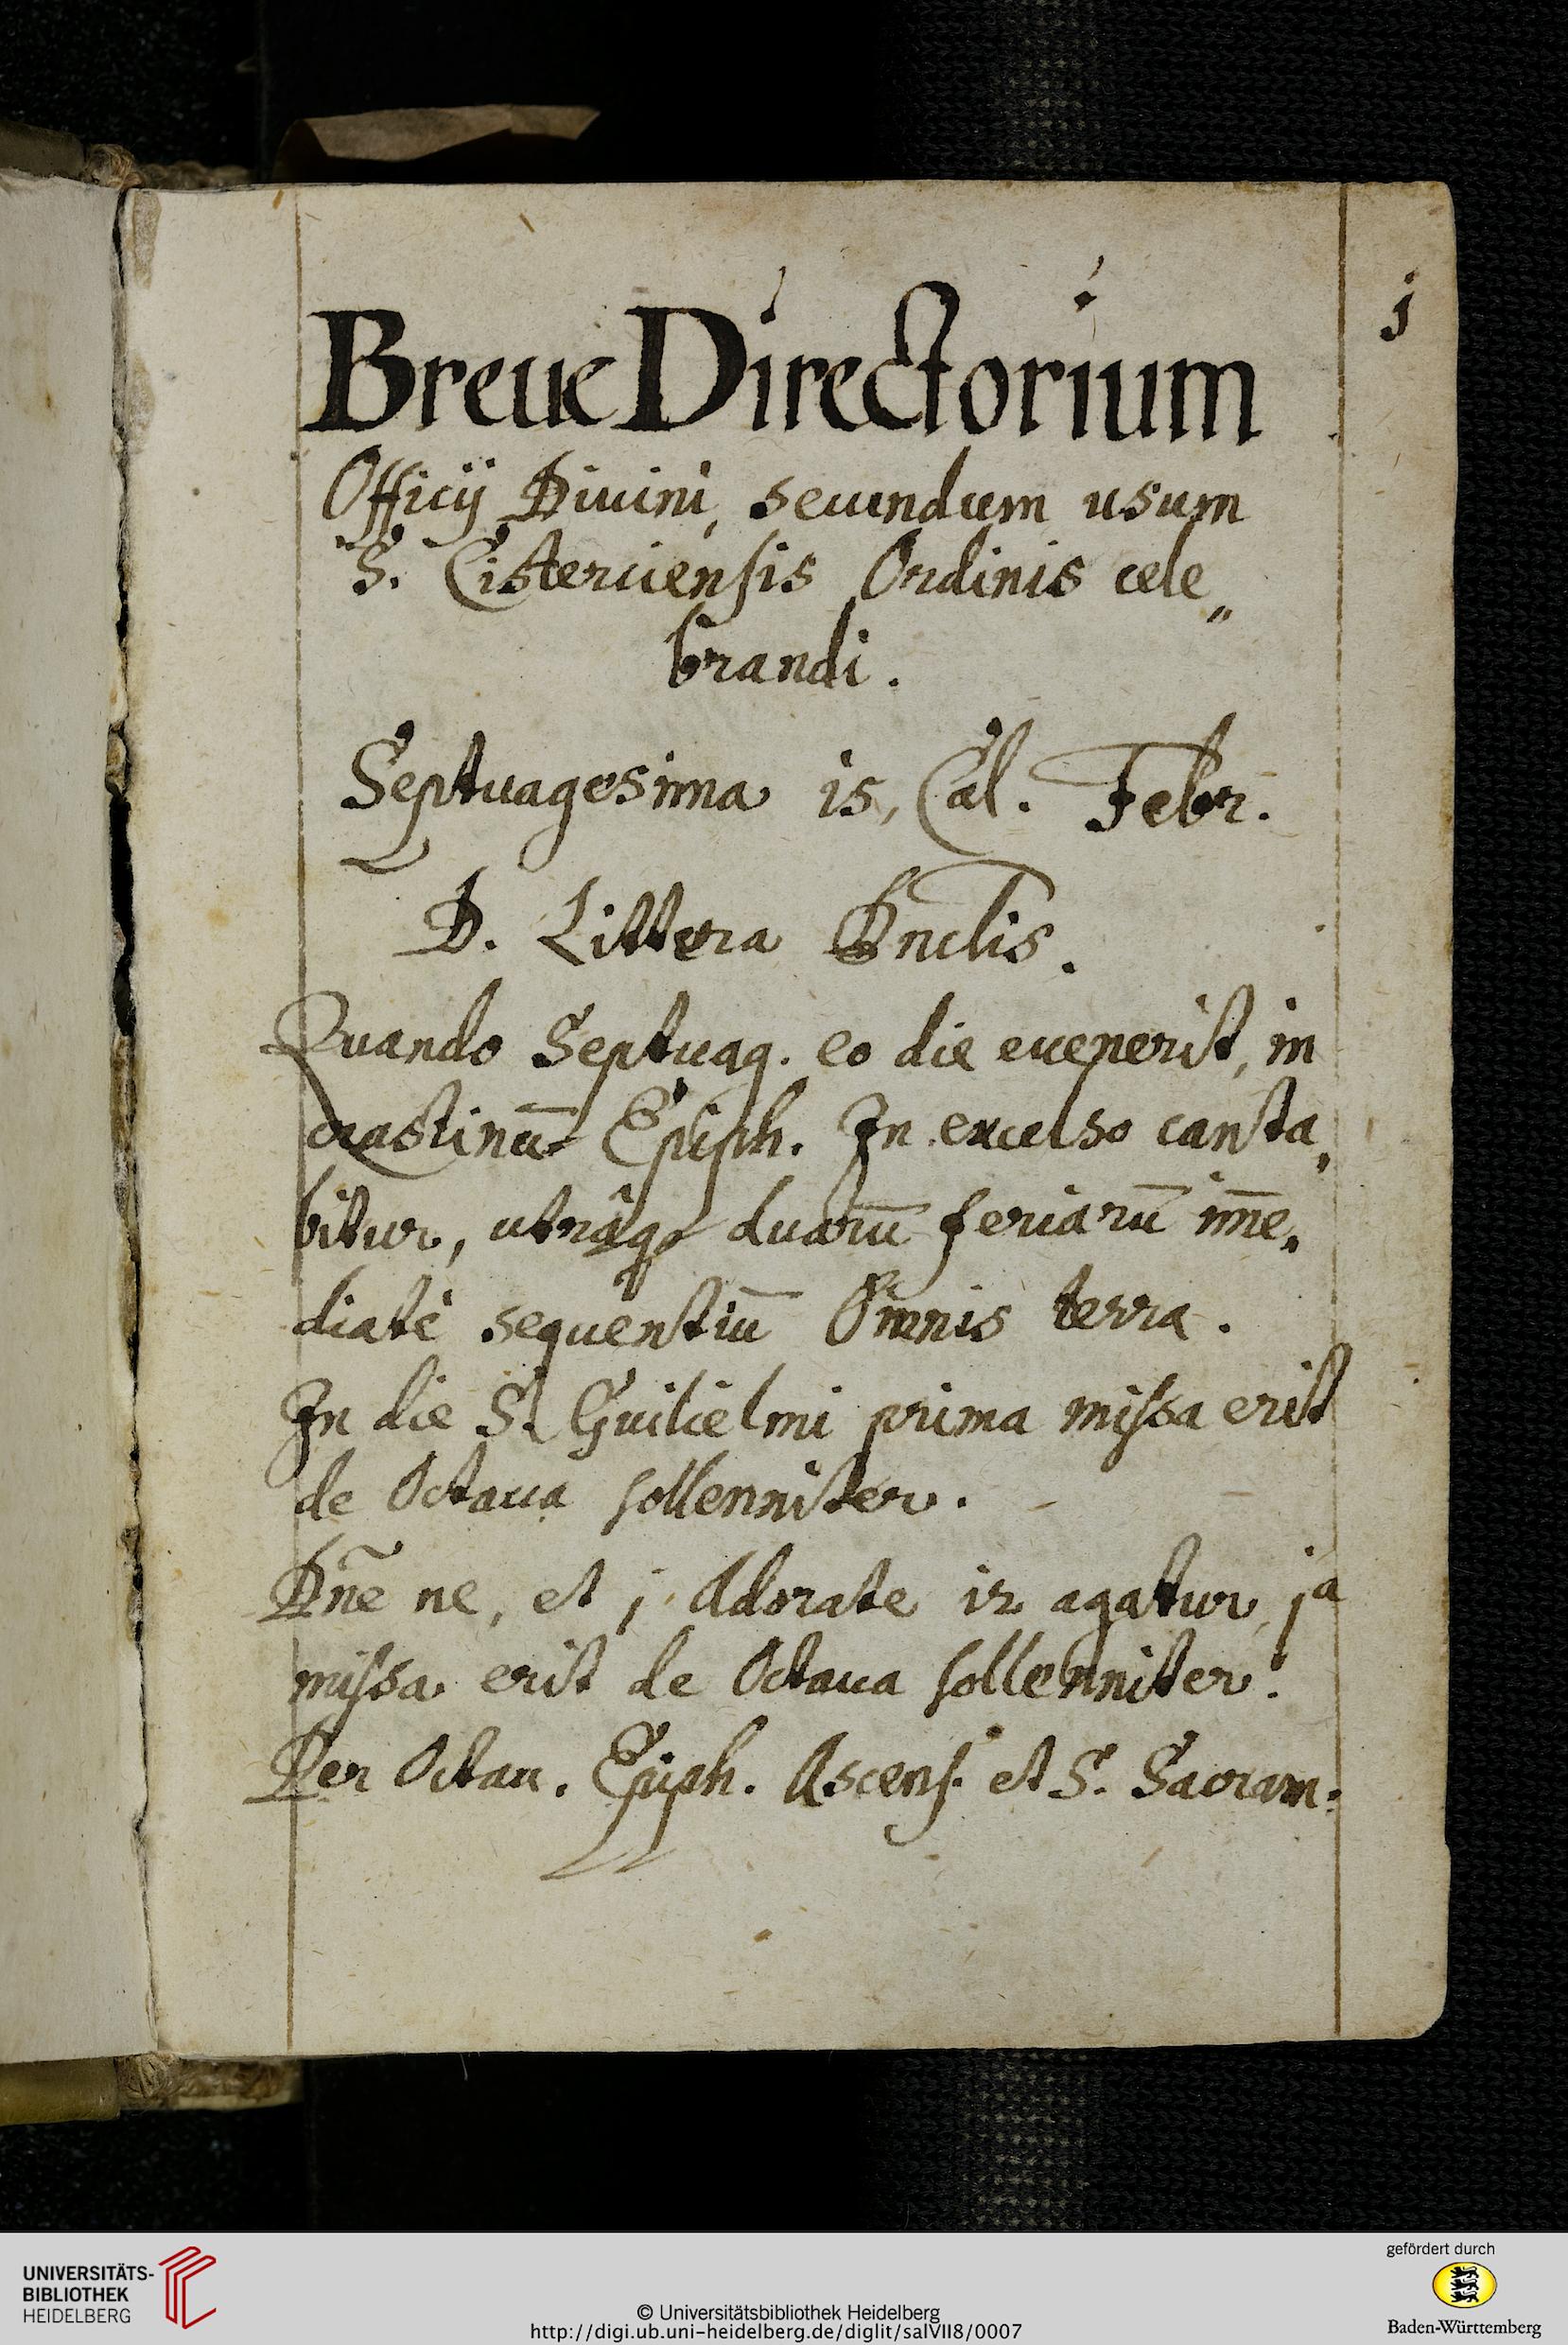 1
Breue Directorium
Officij Diuini, secundum usum
S. Cisterciensis Ordinis cele„
brandi.
Septuagesima 15, Cal. Febr.
D. Littera Dnclis.
Quando Septuag. eo die euenerit, in
crastinū Epiph. In excelso canta„
bitur, utrâqȝ duarū feriarū im̄e„
diatè sequentiū Omnis terra.
In die S. Guilielmi prima missa erit
de Octaua sollenniter.
Dn̄e ne, et j. Adorate 12 agatur, jª
missa erit de Octaua sollenniter.
Per Octau. Epiph. Ascens. et S. Sacram:
UNIVERSITÄTS-
BIBLIOTHEK
HEIDELBERG
© Universitätsbibliothek Heidelberg
http://digi.ub.uni-heidelberg.de/diglit/salVII8/0007
gefördert durch
Baden-Württemberg